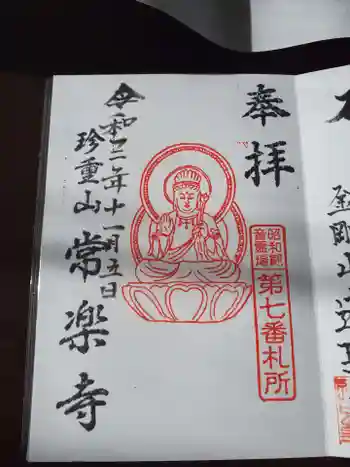 奉拝
昭和観
音霊場
第七番札所
令和三年十一月五日
珍重山
常楽寺
金剛山